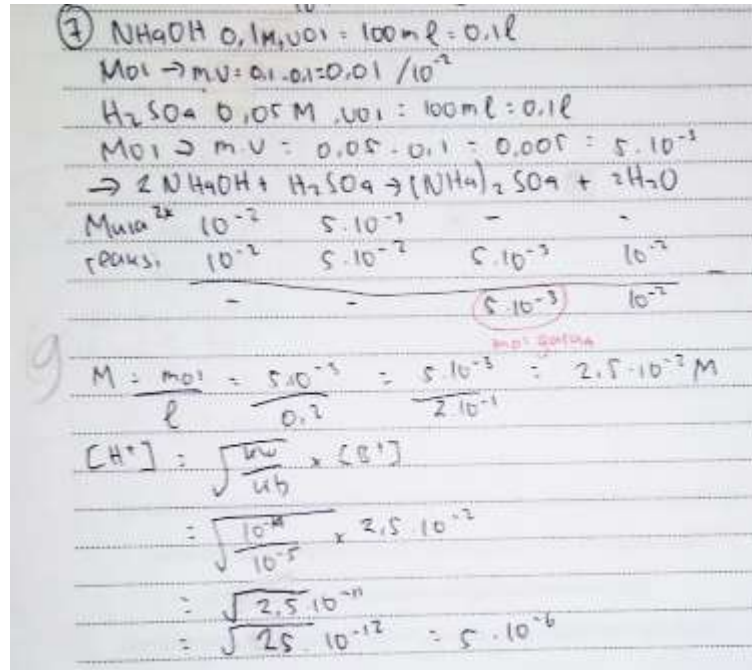 7 NH4OH 0,1M, vol = 100 ml = 0.1 l
Mol → m.v = 0.1 . 0.1 = 0.01 / 10⁻²
H2SO4 0,05 M , vol = 100 ml = 0.1 l
Mol → m.v = 0.05 . 0.1 = 0.005 = 5.10⁻³
→ 2 NH4OH + H2SO4 → (NH4)2 SO4 + 2H2O
Mula²ˣ 10⁻² 5.10⁻³ - -
reaksi 10⁻² 5.10⁻³ 5.10⁻³ 10⁻²
- - 5.10⁻³ 10⁻²
mol garam
9
M = mol/l = 5.10⁻³/0,2 = 5.10⁻³/2.10⁻¹ = 2,5.10⁻² M
[H⁺] = √kw/kb × [B⁺]
= √10⁻¹⁴/10⁻⁵ × 2,5.10⁻²
= √2,5.10⁻¹¹
= √25.10⁻¹² = 5.10⁻⁶